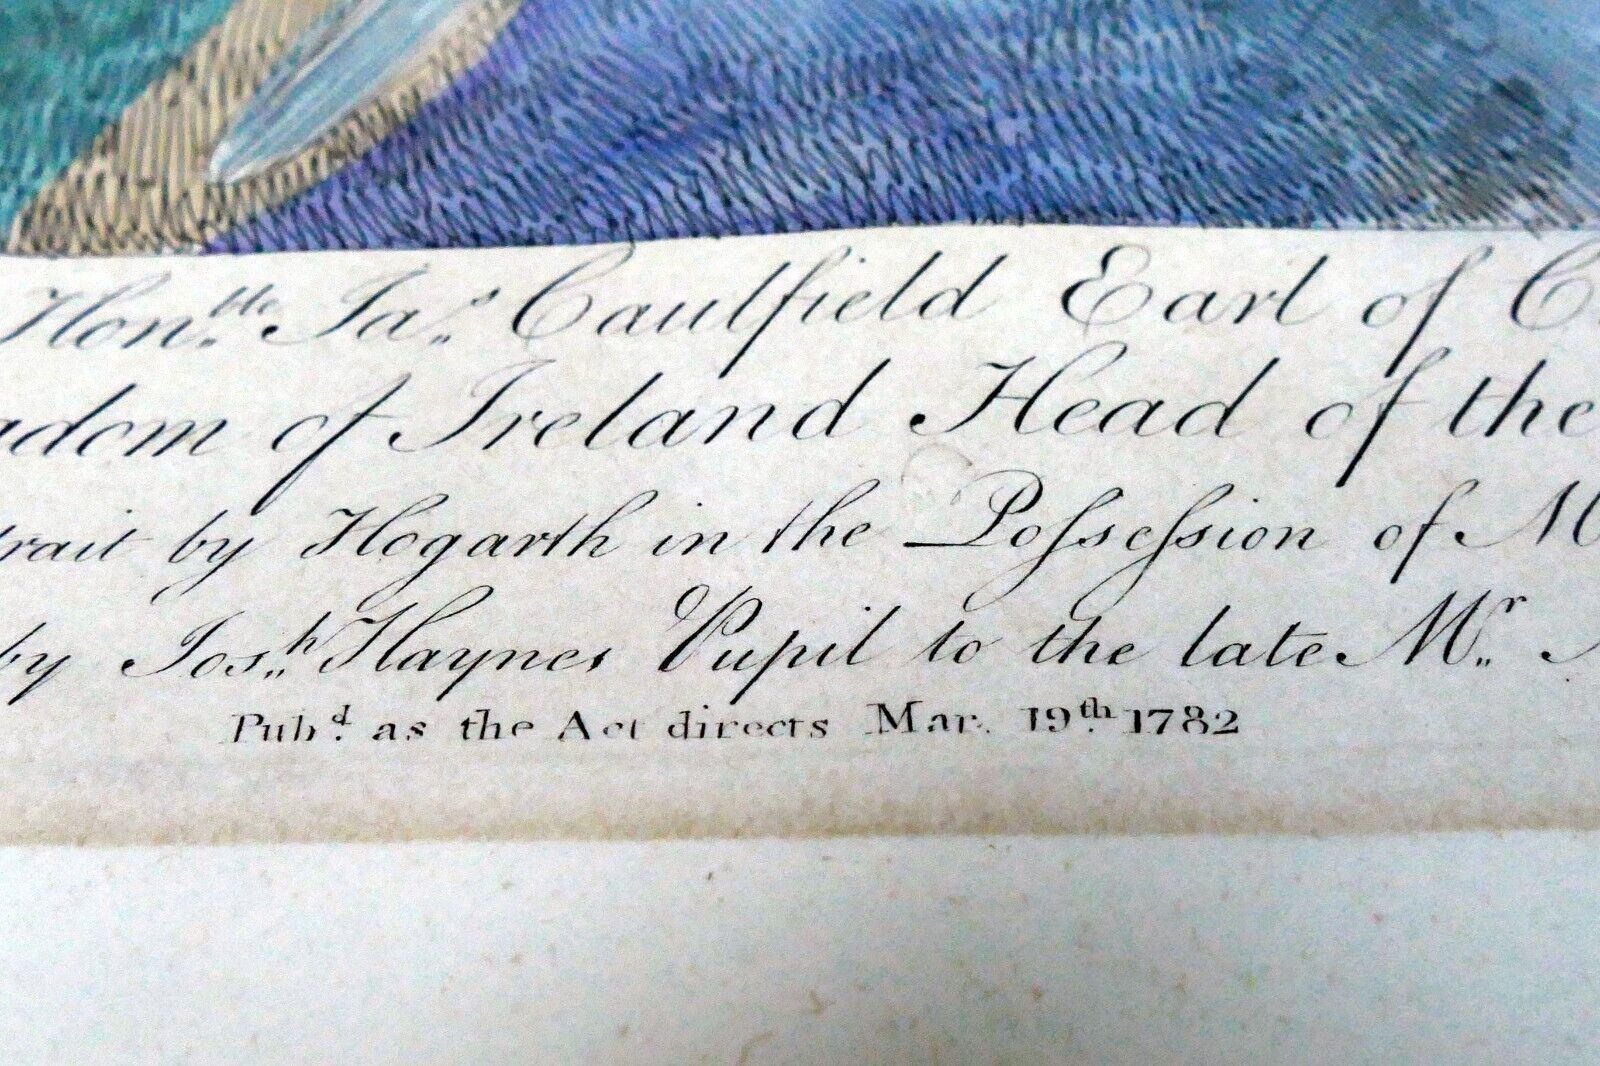 Hon.ble Ja.s Caulfield Earl of C
dom of Ireland Head of the
trait by Hogarth in the Possession of M
by Jos.h Haynes Pupil to the late M.r
Pub.d as the Act directs Mar. 19.th 1782